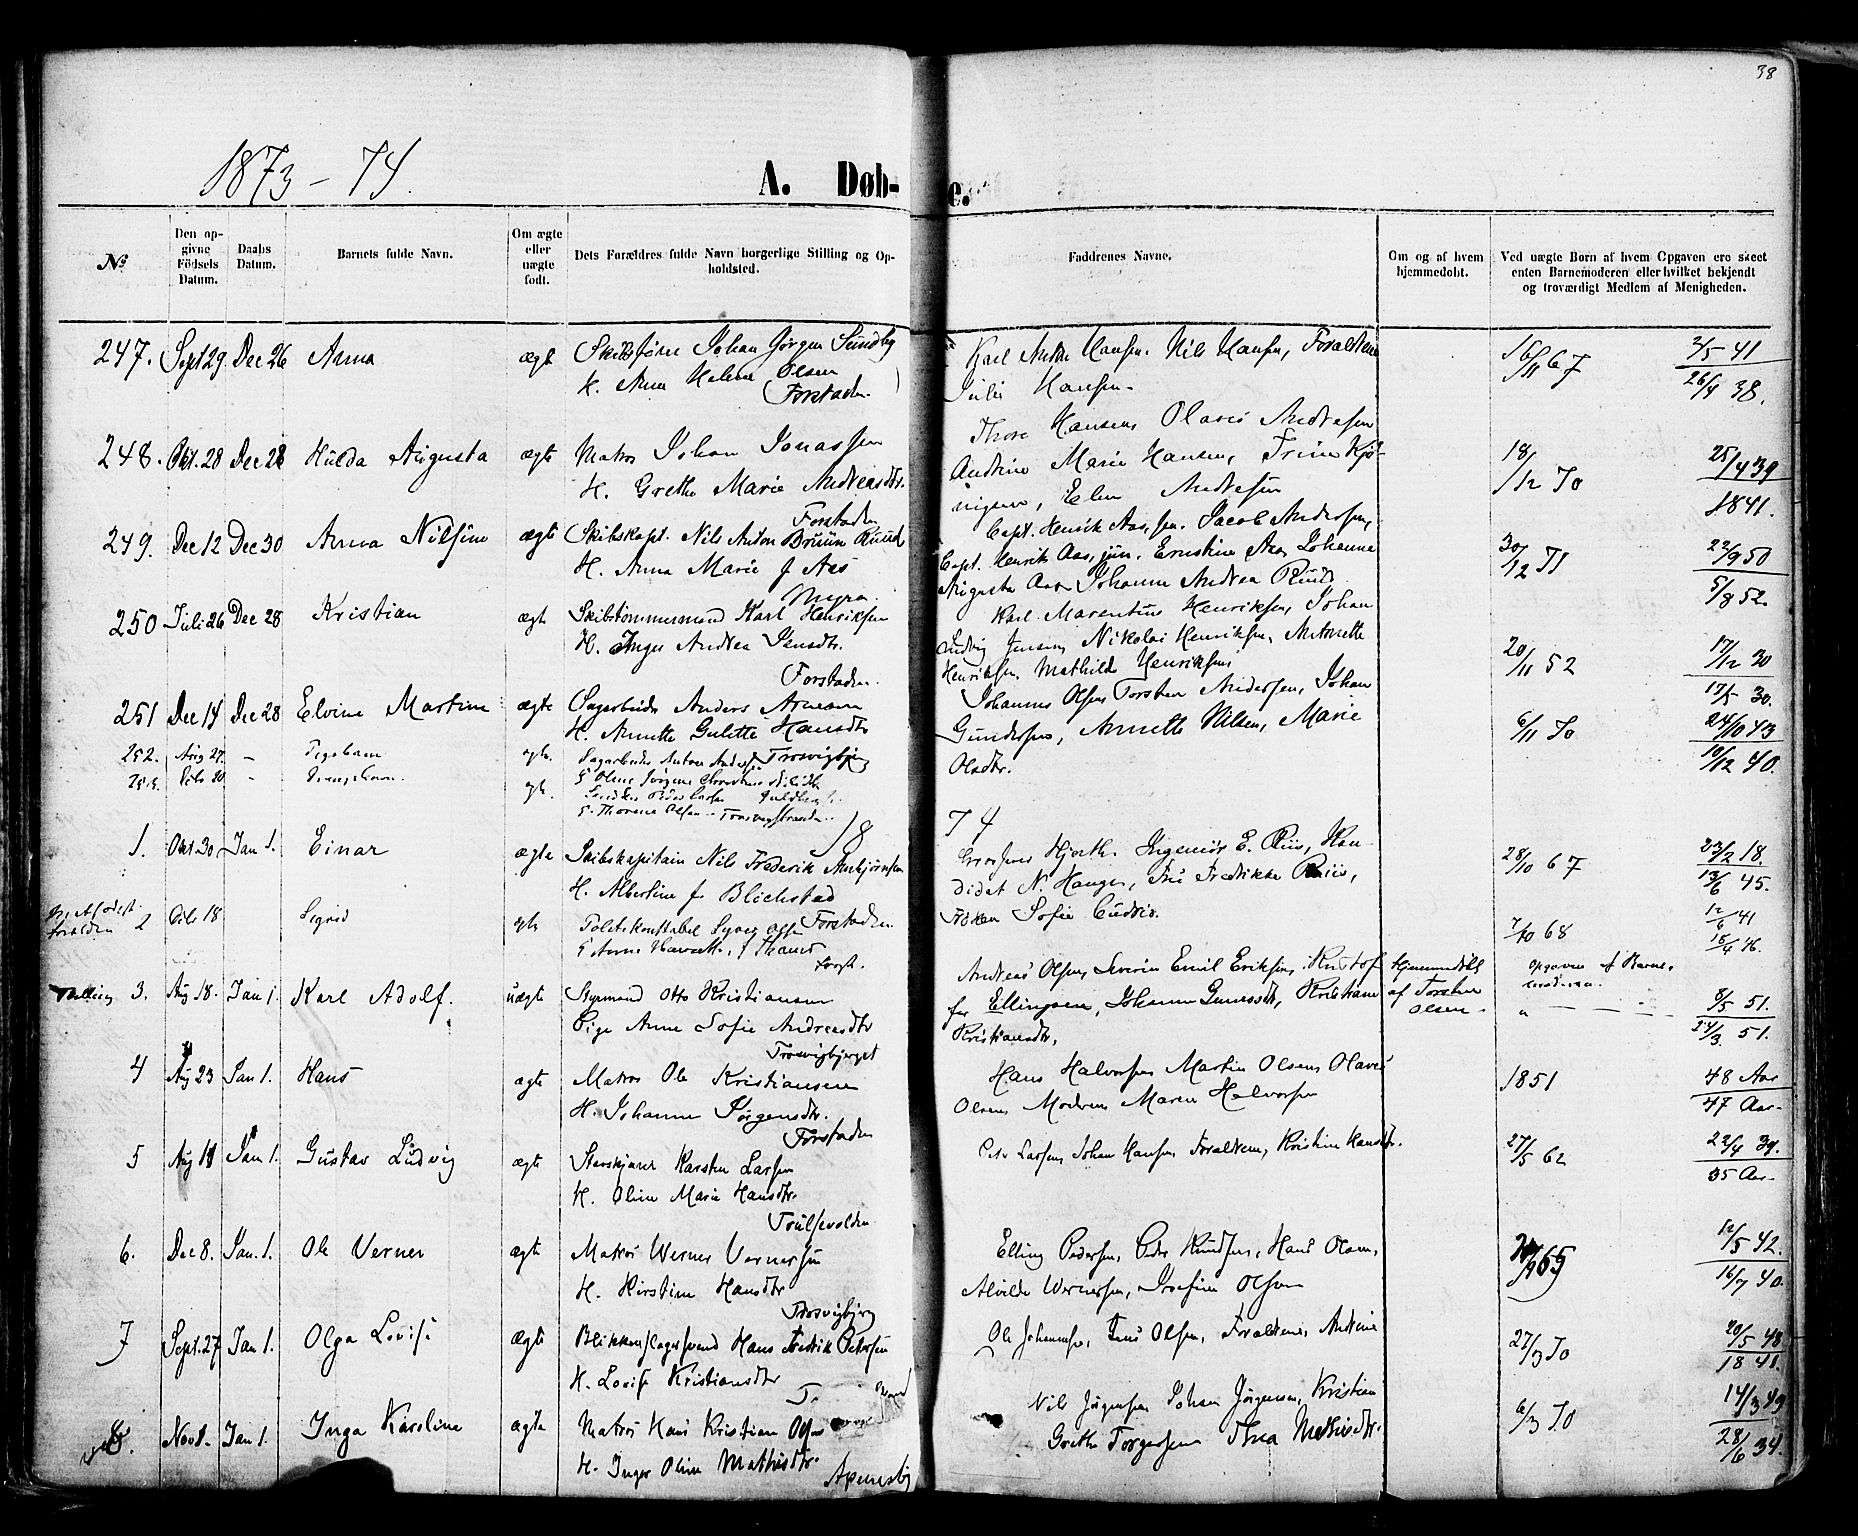 38
1873-74.
A. Døb-
e.
No
Den op-
givne
Födsels
Datum.
Daabs
Datum.
Barnets fulde Navn.
Om ægte
eller
uægte
født.
Dets Forældres fulde Navn borgerlige Stilling og Op-
holdsted.
Faddrenes Navne.
Om og af hvem
hjemmedøbt.
Ved uægte Børn af hvem Opgaven ere skeet
enten Barnemoderen eller hvilket bekjendt
og troværdigt Medlem af Menigheden.
247. Sept 29. Dec 26 Anna ægte Johan Jørgen Sundby
H. Anna Helene Olsen
Forstaden.
Karl Hansen. Nils Hansen, Forældrene
Julie Hansen.
16/11 67
2/5 41
26/4 38.
248. Okt. 28 Dec 28 Hulda Augusta ægte Matros Johan Jonassen
H. Grethe Marie Andreasdtr.
Forstaden
Thore Hansen Olaves Andresen
Marie Hansen, Trine Kjö-
nigsen, Elen Andresen
18/12 70
25/4 39
1841.
249. Dec 12 Dec 30 Anna Nilsine ægte Skibskapt. Nils Anton Bruun Ruud
H. Anna Marie f Aas
Myra.
Capt. Henrik Aas, sen. Jacob Andersen,
Capt. Henrik Aas, jun. Ernstine Aas, Johanne
Augusta Aas, Johanne Andrea Ruud.
30/12 71
22/9 50
5/8 52.
250 Juli 26 Dec 28 Kristian ægte Skibstømmermand Karl Henriksen
H. Inger Andrea Jensdtr.
Forstaden.
Karl Marentius Henriksen, Johan
Ludvig Jensen, Nikolai Henriksen, Antonette
Henriksen, Mathilde Henriksen
20/11 52
17/12 30
17/5 30.
251 Dec 14 Dec 28 Elvine Martine ægte Sagarbeider Anders Arnesen
H. Annette Gulette Hansdtr
Trosvigbjerg
Johannes Olsen, Torsten Andersen, Johan
Gundersen, Annette Nilsen, Marie
Olsdtr.
6/11 70
24/10 43
10/12 40.
252. Aug 27. - Pigebarn
Sagarbeider Anton
Dcbr 20. - Drengebarn.
Peder Larsen
Thorine Olsen - Trosvigstranden.
1874
1. Okt 30 Jan 1. Einar ægte Skibskapitain Nils Frederik Ankjørnsen
H. Albertine f Blichstad
Forstaden.
Hjorth. Ingeniør E. Riis, Kan-
didat N. Hauger, Fru Fredrikke Riis,
Frøken Sofie
28/10 67
23/2 18.
13/6 45.
2 Dcbr 18 Sigrid Politikonstabel Syver Olsen
Forst.
7/10 68
12/6 41
15/4 46.
3. Aug 18. Jan 1. Karl Adolf. uægte Styrmand Otto Kristiansen
Pige Anne Sofie Andreasdtr
Trosvigbjerget
Andreas Olsen, Severin Emil Eriksen, Kristof-
fer Ellingsen, Johanne Kristiane
Kristiansdtr,
Hjemmedøbt
af Torsten
Olsen.
Opgaven af Barne-
moderen.
" - - - -
8/5 51.
24/3. 51.
4 Aug 23 Jan 1. Hans ægte Matros Ole Kristiansen
H. Johanne Jørgensdtr.
Forstaden
Hans Halvorsen Martin Olsen Olaves
Olsen Moderen Maren Halvorsen
1851
48 Aar
47 Aar.
5 Aug 11 Jan 1. Gustav Ludvig ægte Karsten Larsen
H. Oline Marie Hansdtr.
Trulsevolden
Larsen Johan Hansen Forældrene, Kristine Hansdtr.
27/5 62
22/4 39.
35 Aar.
6. Dec 8. Jan. 1. Ole Verner ægte Matros Werner Vernersen
H. Kirstine Hansdtr
Trosvigbjerg
Elling Pedersen, Peder Knudsen, Hans Olsen,
Alvilde Wernersen, Josefine Olsen
65
12/5 42.
16/7 40.
7 Sept. 27 Jan 1. Olga Lovise ægte Blikkenslagersvend Hans Fredrik Petersen
H. Lovise Kristiansdtr
Ole Johannesen, Jens Olsen, Forældrene, Andrine
27/3 70
20/5 48
18 41.
8. Nov 1. Jan 1. Inga Karoline ægte Matros Hans Kristian Olsen
H. Inger Oline Mathisdtr.
Apenesby
Nils Jørgensen Johan Jørgensen, Kristian
Grethe Torgersen Thea Mathisdtr.
6/3 70
14/3 49
28/6 34.